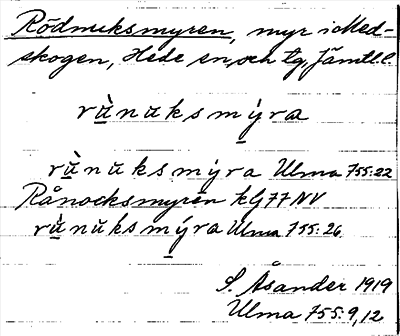 Rödmuksmyren, myr i Med-
skogen, Hede sn, och tg, Jämtl. l.
rùnuksmýra
rùnuksmýra Ulma 755:22
Rånocksmyren kG77NV
rùnuksmýra Ulma 755:26
S. Åsander 1919
Ulma 755:9,12